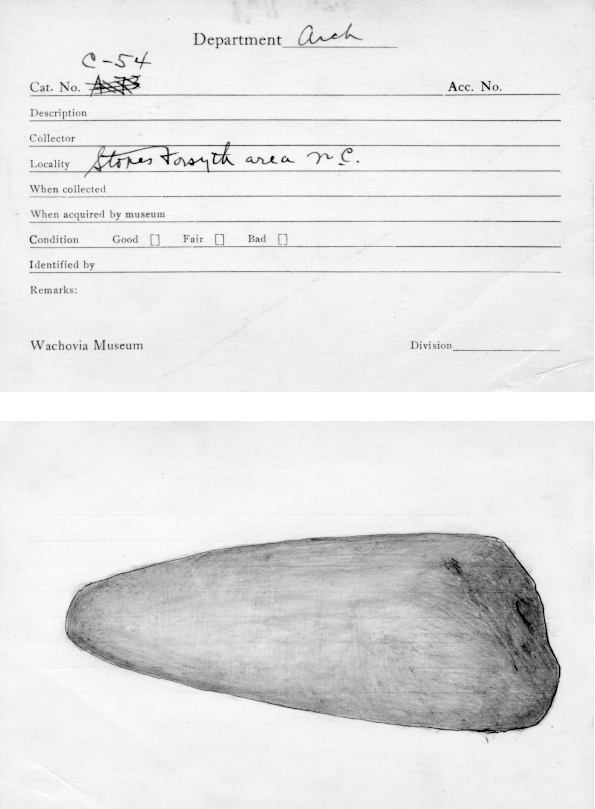 Department Arch
C-54
Cat. No. Acc. No.
Description
Collector
Locality Stokes Forsyth area N.C.
When collected
When acquired by museum
Condition Good [] Fair [] Bad []
Identified by
Remarks:
Wachovia Museum Division